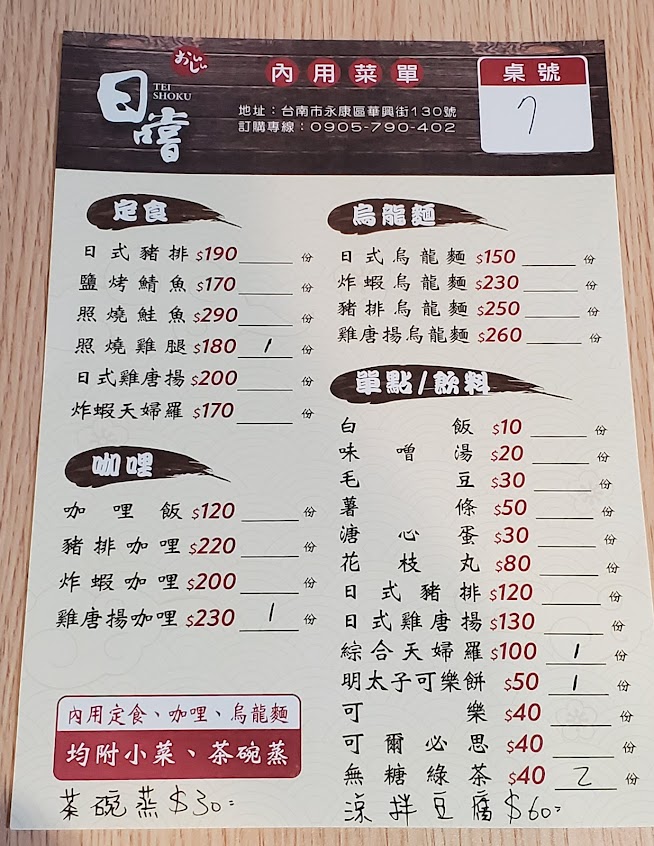 おいしい
日嚐
TEI
SHOKU
內用菜單
地址：台南市永康區華興街130號
訂購專線：0905-790-402
桌號
7
定食
日式豬排 $190 份
鹽烤鯖魚 $170 份
照燒鮭魚 $290 份
照燒雞腿 $180 1 份
日式雞唐揚 $200 份
炸蝦天婦羅 $170 份
咖哩
咖哩飯 $120 份
豬排咖哩 $220 份
炸蝦咖哩 $200 份
雞唐揚咖哩 $230 1 份
內用定食、咖哩、烏龍麵
均附小菜、茶碗蒸
茶碗蒸$30=
烏龍麵
日式烏龍麵 $150 份
炸蝦烏龍麵 $230 份
豬排烏龍麵 $250 份
雞唐揚烏龍麵 $260 份
單點/飲料
白飯 $10 份
味噌湯 $20 份
毛豆 $30 份
薯條 $50 份
溏心蛋 $30 份
花枝丸 $80 份
日式豬排 $120 份
日式雞唐揚 $130 份
綜合天婦羅 $100 1 份
明太子可樂餅 $50 1 份
可樂 $40 份
可爾必思 $40 份
無糖綠茶 $40 2 份
涼拌豆腐$60=